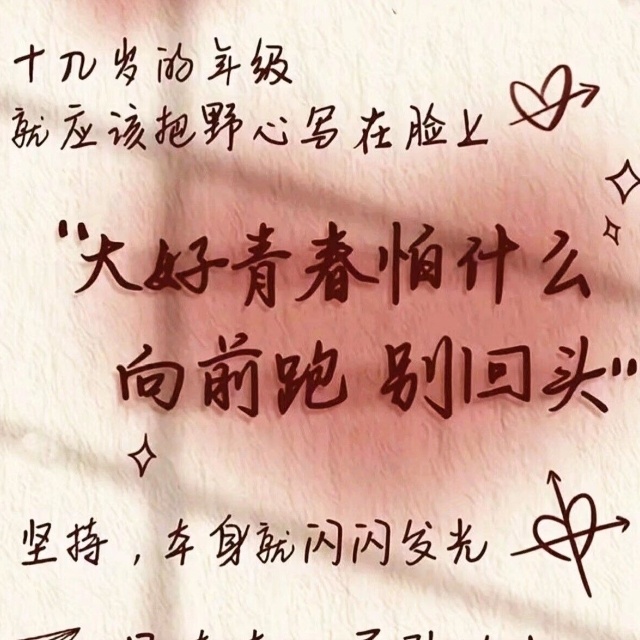 十几岁的年级
就应该把野心写在脸上
“大好青春怕什么
向前跑 别回头”
坚持，本身就闪闪发光